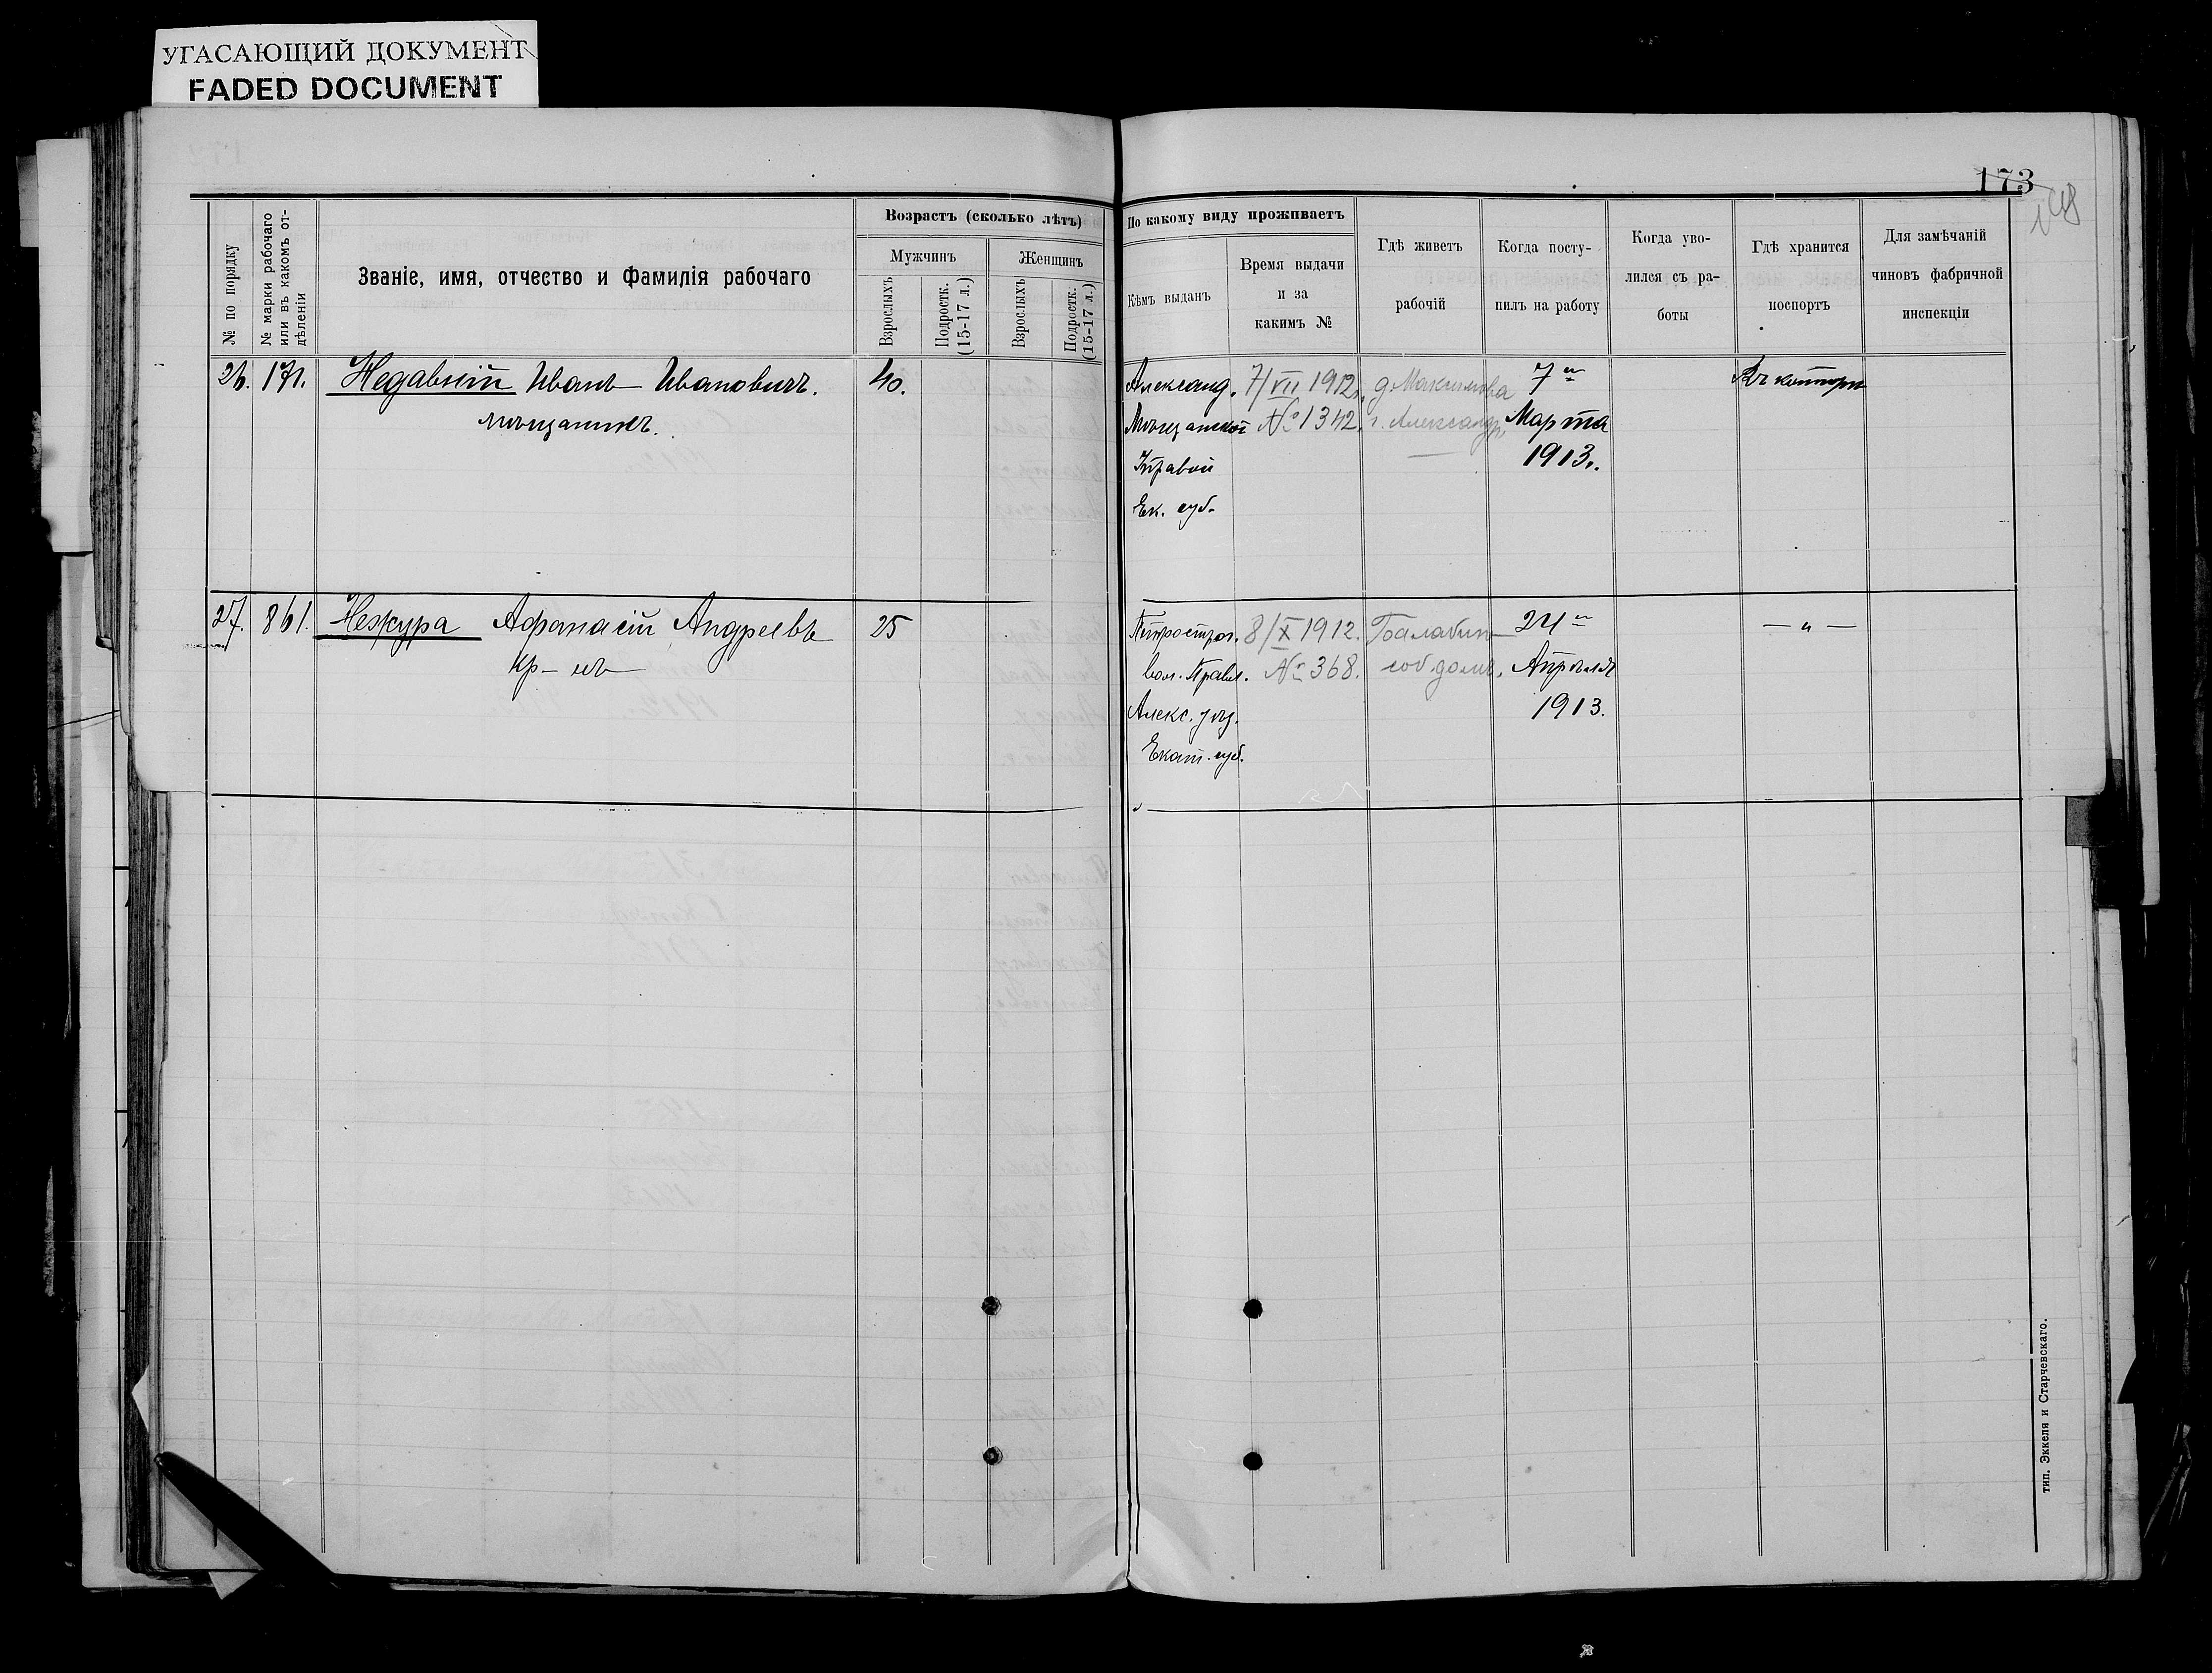 УГАСАЮЩИЙ ДОКУМЕНТ
FADED DOCUMENT
173
№ по порядку
№ марки рабочаго
или въ какомъ от-
дѣленіи
Званіе, имя, отчество и фамилія рабочаго
Возрастъ (сколько лѣтъ)
Мужчинъ
Женщинъ
Взрослыхъ
Подростк.
(15-17 л.)
Взрослыхъ
Подростк.
(15-17 л.)
По какому виду проживаетъ
Кѣмъ выданъ
Время выдачи
и за
какимъ №
Гдѣ живетъ
рабочій
Когда посту-
пилъ на работу
Когда уво-
лился съ ра-
боты
Гдѣ хранится
поспортъ
Для замѣчаній
чиновъ фабричной
инспекціи
26. 171. Недавній Иванъ Ивановичъ.
мѣщанинъ.
40.
Александ.
Мѣщанской
Управой
Ек. губ.
7/VII 1912г.
№ 1342.
д. Максимова
г. Александр.
7го
Марта
1913г.
Въ конторѣ
27. 861. Нежура Афанасій Андреевъ
кр-нъ
25
вол. Правл.
Алекс. уѣз.
Екат. губ.
8/X 1912.
№ 368.
соб. домъ.
24го
Апрѣля
1913.
— " —
тип. Эккеля и Старчевскаго.